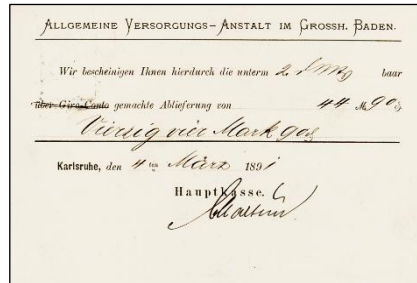 ALLGEMEINE VERSORGUNGS-ANSTALT IM GROSSH. BADEN.
Wir bescheinigen Ihnen hierdurch die unterm 2. baar
über Giro-Conto gemachte Ablieferung von 44 M 90
Vierzig vier Mark 90
Karlsruhe, den 4 ten März 1891
Hauptkasse.